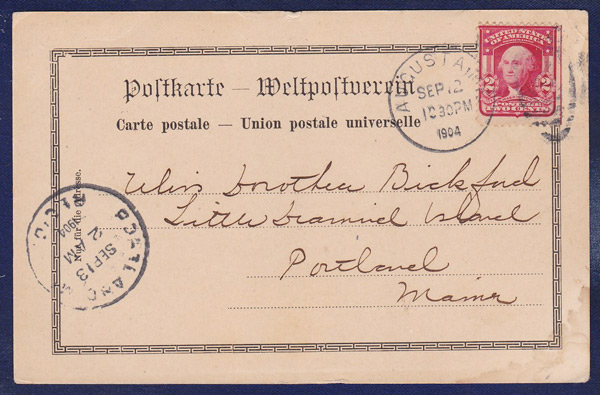 Postkarte — Weltpostverein
Carte postale — Union postale universelle
UNITED STATES
OF AMERICA
2 2
POSTAGE
TWO CENTS
AUGUSTA
SEP 12
10 30PM
1904
Miss Dorothea Bickford
Little Diamond Island
Portland
Maine
Nur für die Adresse.
PORTLAND
SEP 13
2 AM
1904